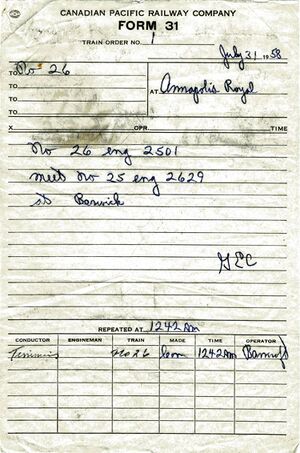 CANADIAN PACIFIC RAILWAY COMPANY
FORM 31
TRAIN ORDER NO. 1
July 31 1958
TO No 26
TO
AT Annapolis Royal
TO
TO
X OPR. TIME
No 26 eng 2501
meet No 25 eng 2629
at Barwick
GEC
REPEATED AT 1242 AM
CONDUCTOR ENGINEMAN TRAIN MADE TIME OPERATOR
Timmins No 26 com 1242AM